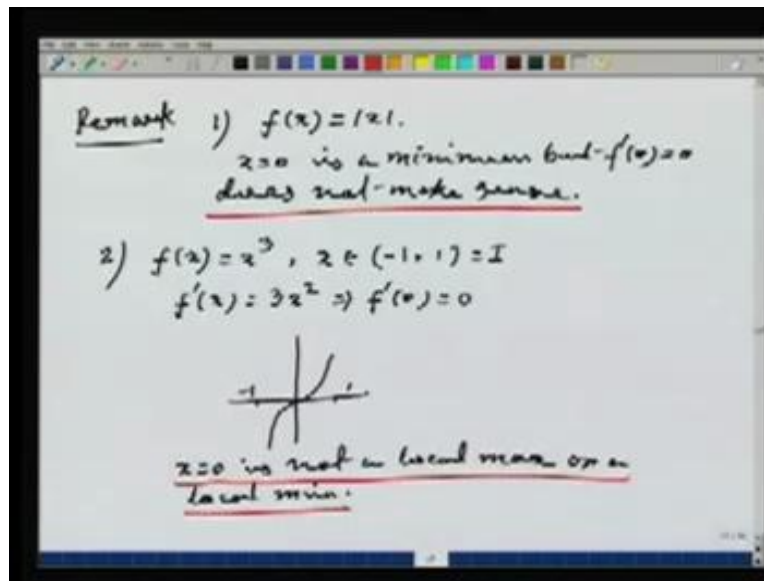 Remark 1) f(x) = |x|.
x=0 is a minimum but f'(0)=0
does not make sense.
2) f(x) = x³, x ∈ (-1, 1) = I
f'(x) = 3x² ⇒ f'(0) = 0
-1 1
x=0 is not a local max or a
local min.